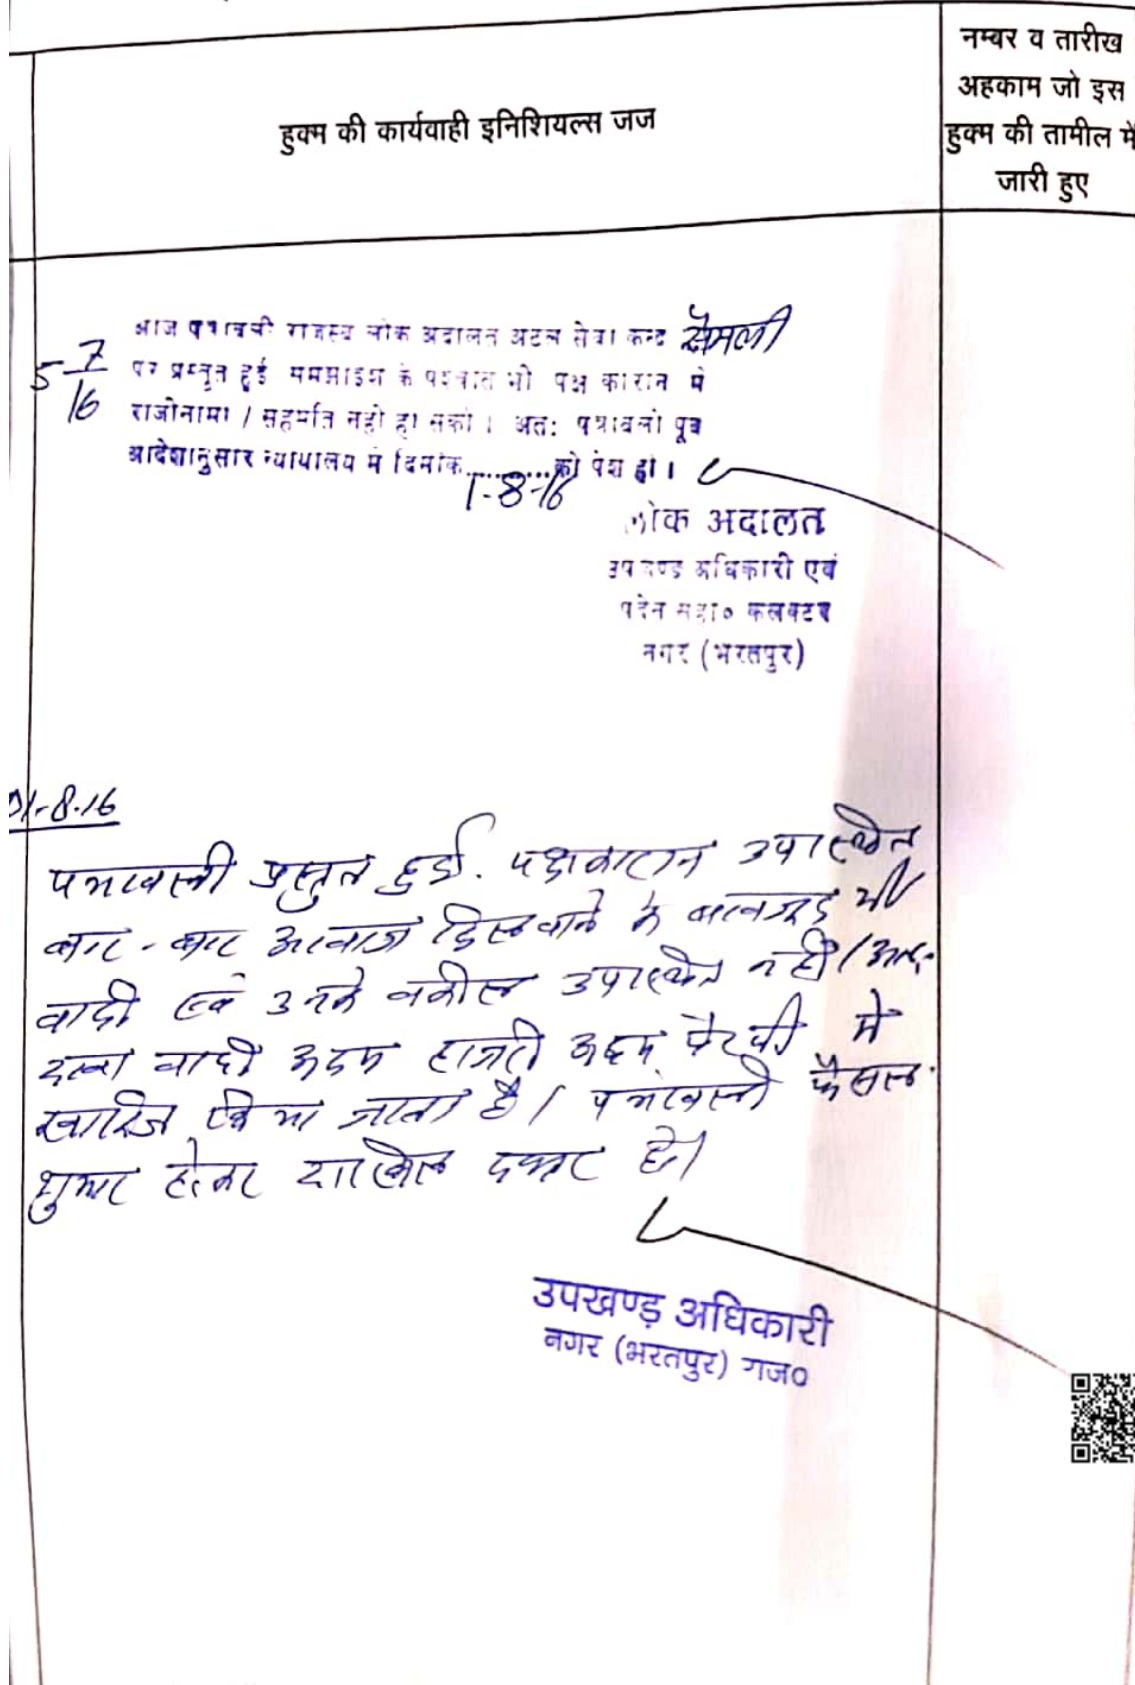 हुक्म की कार्यवाही इनिशियल्स जज
नम्बर व तारीख
अहकाम जो इस
हुक्म की तामील में
जारी हुए
5-7/16
आज पत्रावली राजस्व लोक अदालत अटल सेवा केन्द्र
पर प्रस्तुत हुई समझाइश के पश्चात भी पक्ष कारान में
राजीनामा / सहमति नहीं हो सकी । अतः पत्रावली पूर्व
आदेशानुसार न्यायालय में दिनांक..........को पेश हो ।
1-8-16
लोक अदालत
उपखण्ड अधिकारी एवं
पदेन सहा० कलक्टर
नगर (भरतपुर)
01-8-16
पत्रावली प्रस्तुत हुई. पक्षकारान उपास्थित
बार-बार आवाज दिलवाने के बावजूद भी
वादी एवं उनके वकील उपास्थित नही। अतः
वादी अदम हाजरी अदम पैरवी में
खारिज किया जाता है। पत्रावली फैसल
शुमार होकर दाखिल दफ्तर हो।
उपखण्ड अधिकारी
नगर (भरतपुर) राज०